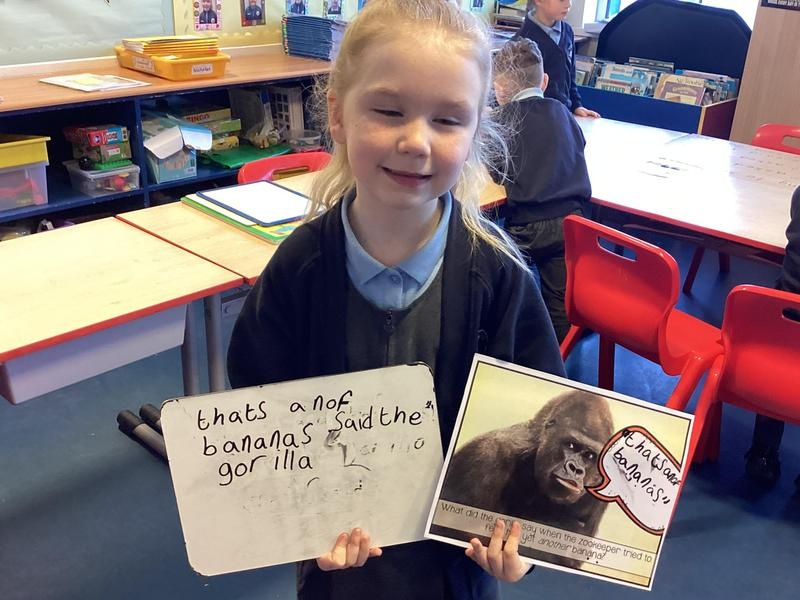 thats anof
bananas said the"
gorilla
"thats anof
bananas"
What did the say when the zookeeper tried to
yet another banana?
BINGO